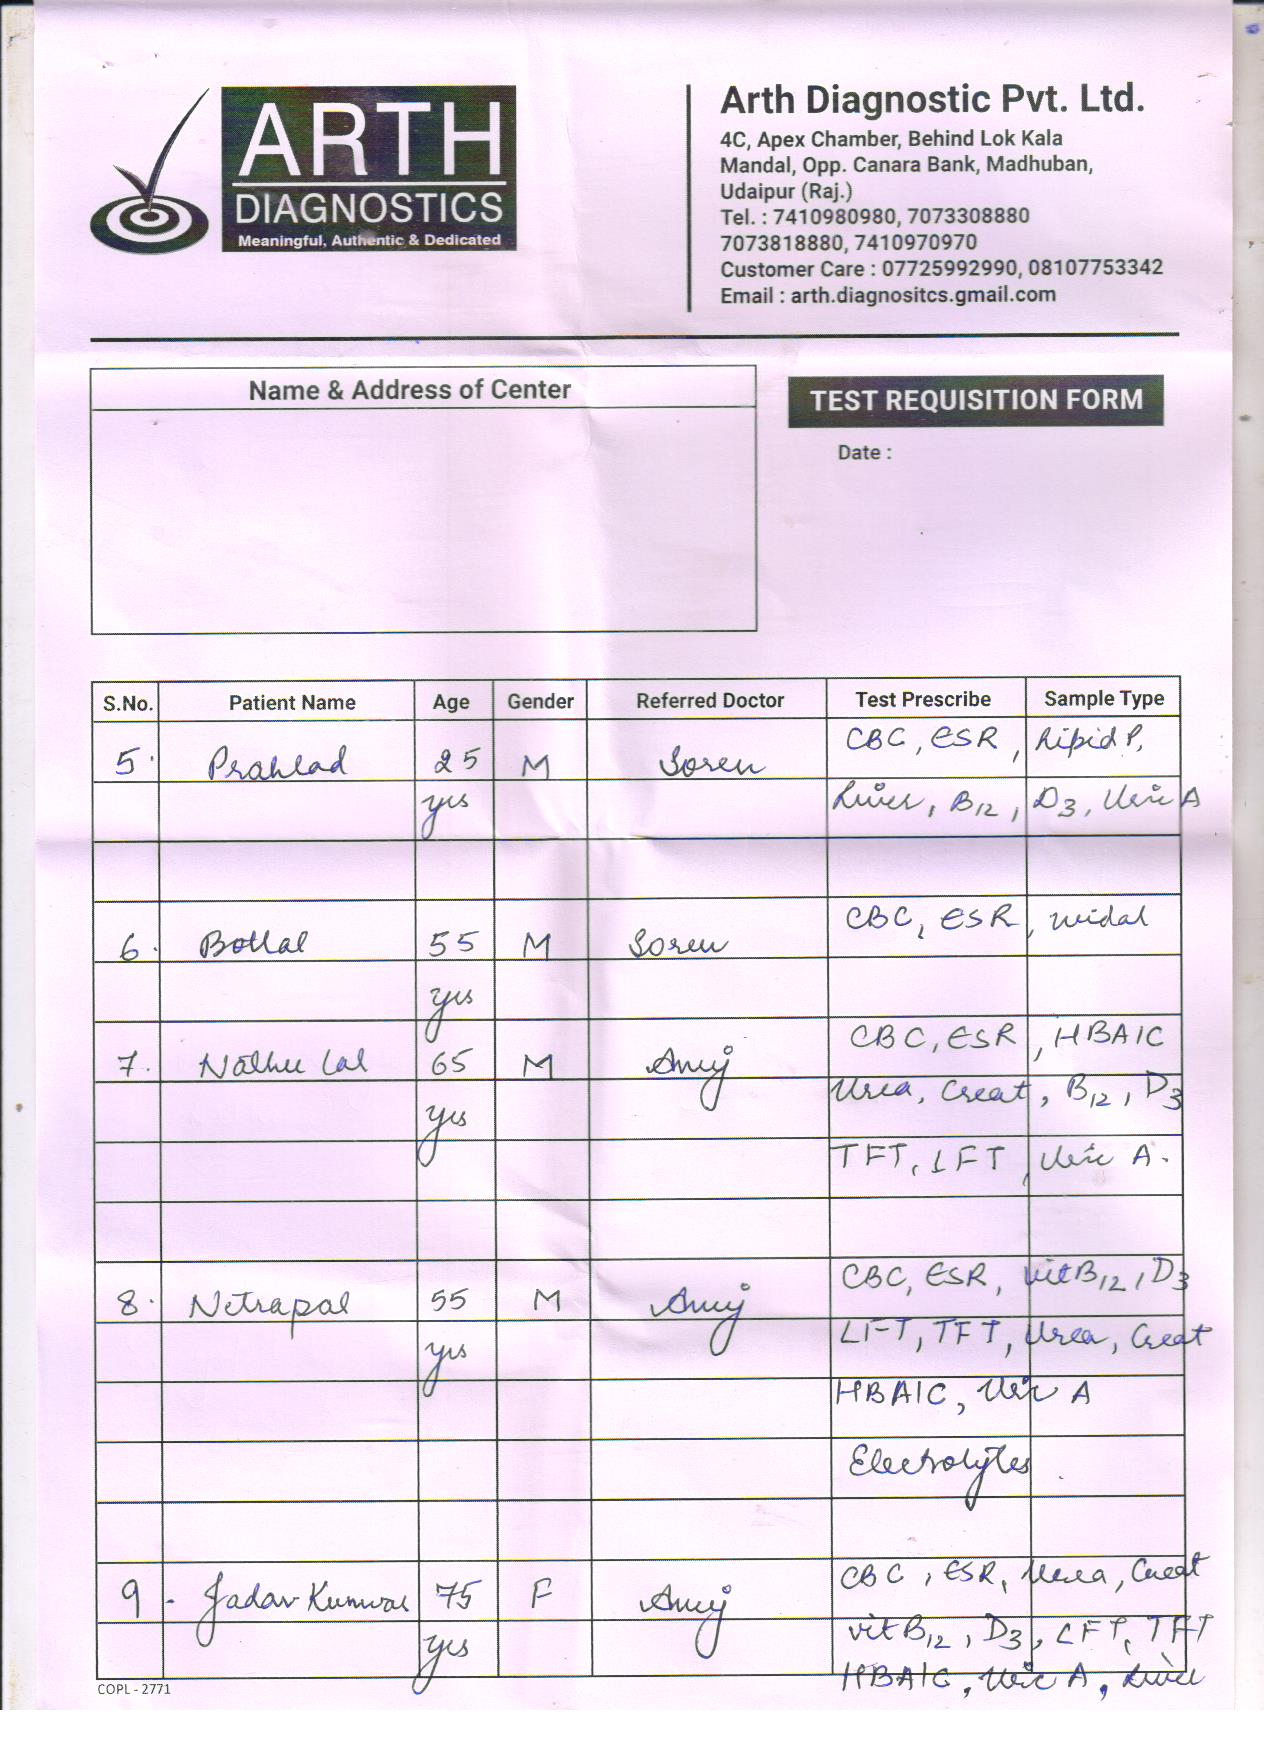 ARTH
DIAGNOSTICS
Meaningful, Authentic & Dedicated
Arth Diagnostic Pvt. Ltd.
4C, Apex Chamber, Behind Lok Kala
Mandal, Opp. Canara Bank, Madhuban,
Udaipur (Raj.)
Tel. : 7410980980, 7073308880
7073818880, 7410970970
Customer Care : 07725992990, 08107753342
Email : arth.diagnositcs.gmail.com
Name & Address of Center
TEST REQUISITION FORM
Date :
S.No. Patient Name Age Gender Referred Doctor Test Prescribe Sample Type
CBC, ESR, Lipid P,
5. Prahlad 25 M Soren
yrs Liver, B12, D3, Uric A
CBC, ESR, widal
6. 55 M Soren
yrs
CBC, ESR, HBA1C
7. Nathu Lal 65 M Anuj
Urea, Creat, B12, D3
yrs
TFT, LFT, Uric A.
CBC, ESR, vit B12, D3
8. Netrapal 55 M Anuj
yrs LFT, TFT, Urea, Creat
HBA1C, Uric A
Electrolytes
CBC, ESR, Urea, Creat
9. Jadav Kunwar 75 F Anuj
yrs vit B12, D3, LFT, TFT
HBA1C, Uric A, Liver
COPL - 2771